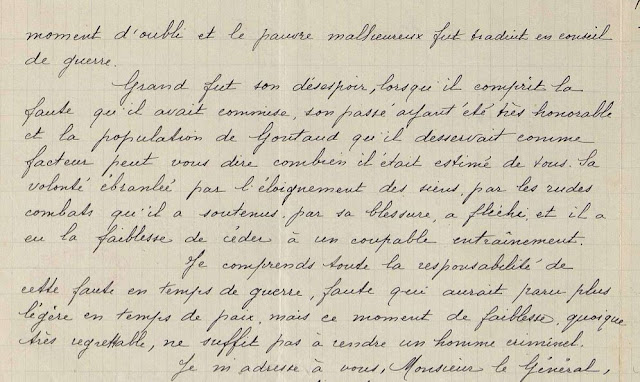 moment d'oubli et le pauvre malheureux fut traduit en conseil
de guerre.
Grand fut son désespoir, lorsqu'il comprit la
faute qu'il avait commise, son passé ayant été très honorable
et la population de Gontaud qu'il desservait comme
facteur peut vous dire combien il était estimé de tous. Sa
volonté ébranlée par l'éloignement des siens, par les rudes
combats qu'il a soutenus, par sa blessure, a fléchi, et il a
eu la faiblesse de céder à un coupable entraînement.
Je comprends toute la responsabilité de
cette faute en temps de guerre, faute qui aurait paru plus
légère en temps de paix, mais ce moment de faiblesse, quoique
très regrettable, ne suffit pas à rendre un homme criminel.
Je m'adresse à vous, Monsieur le Général,